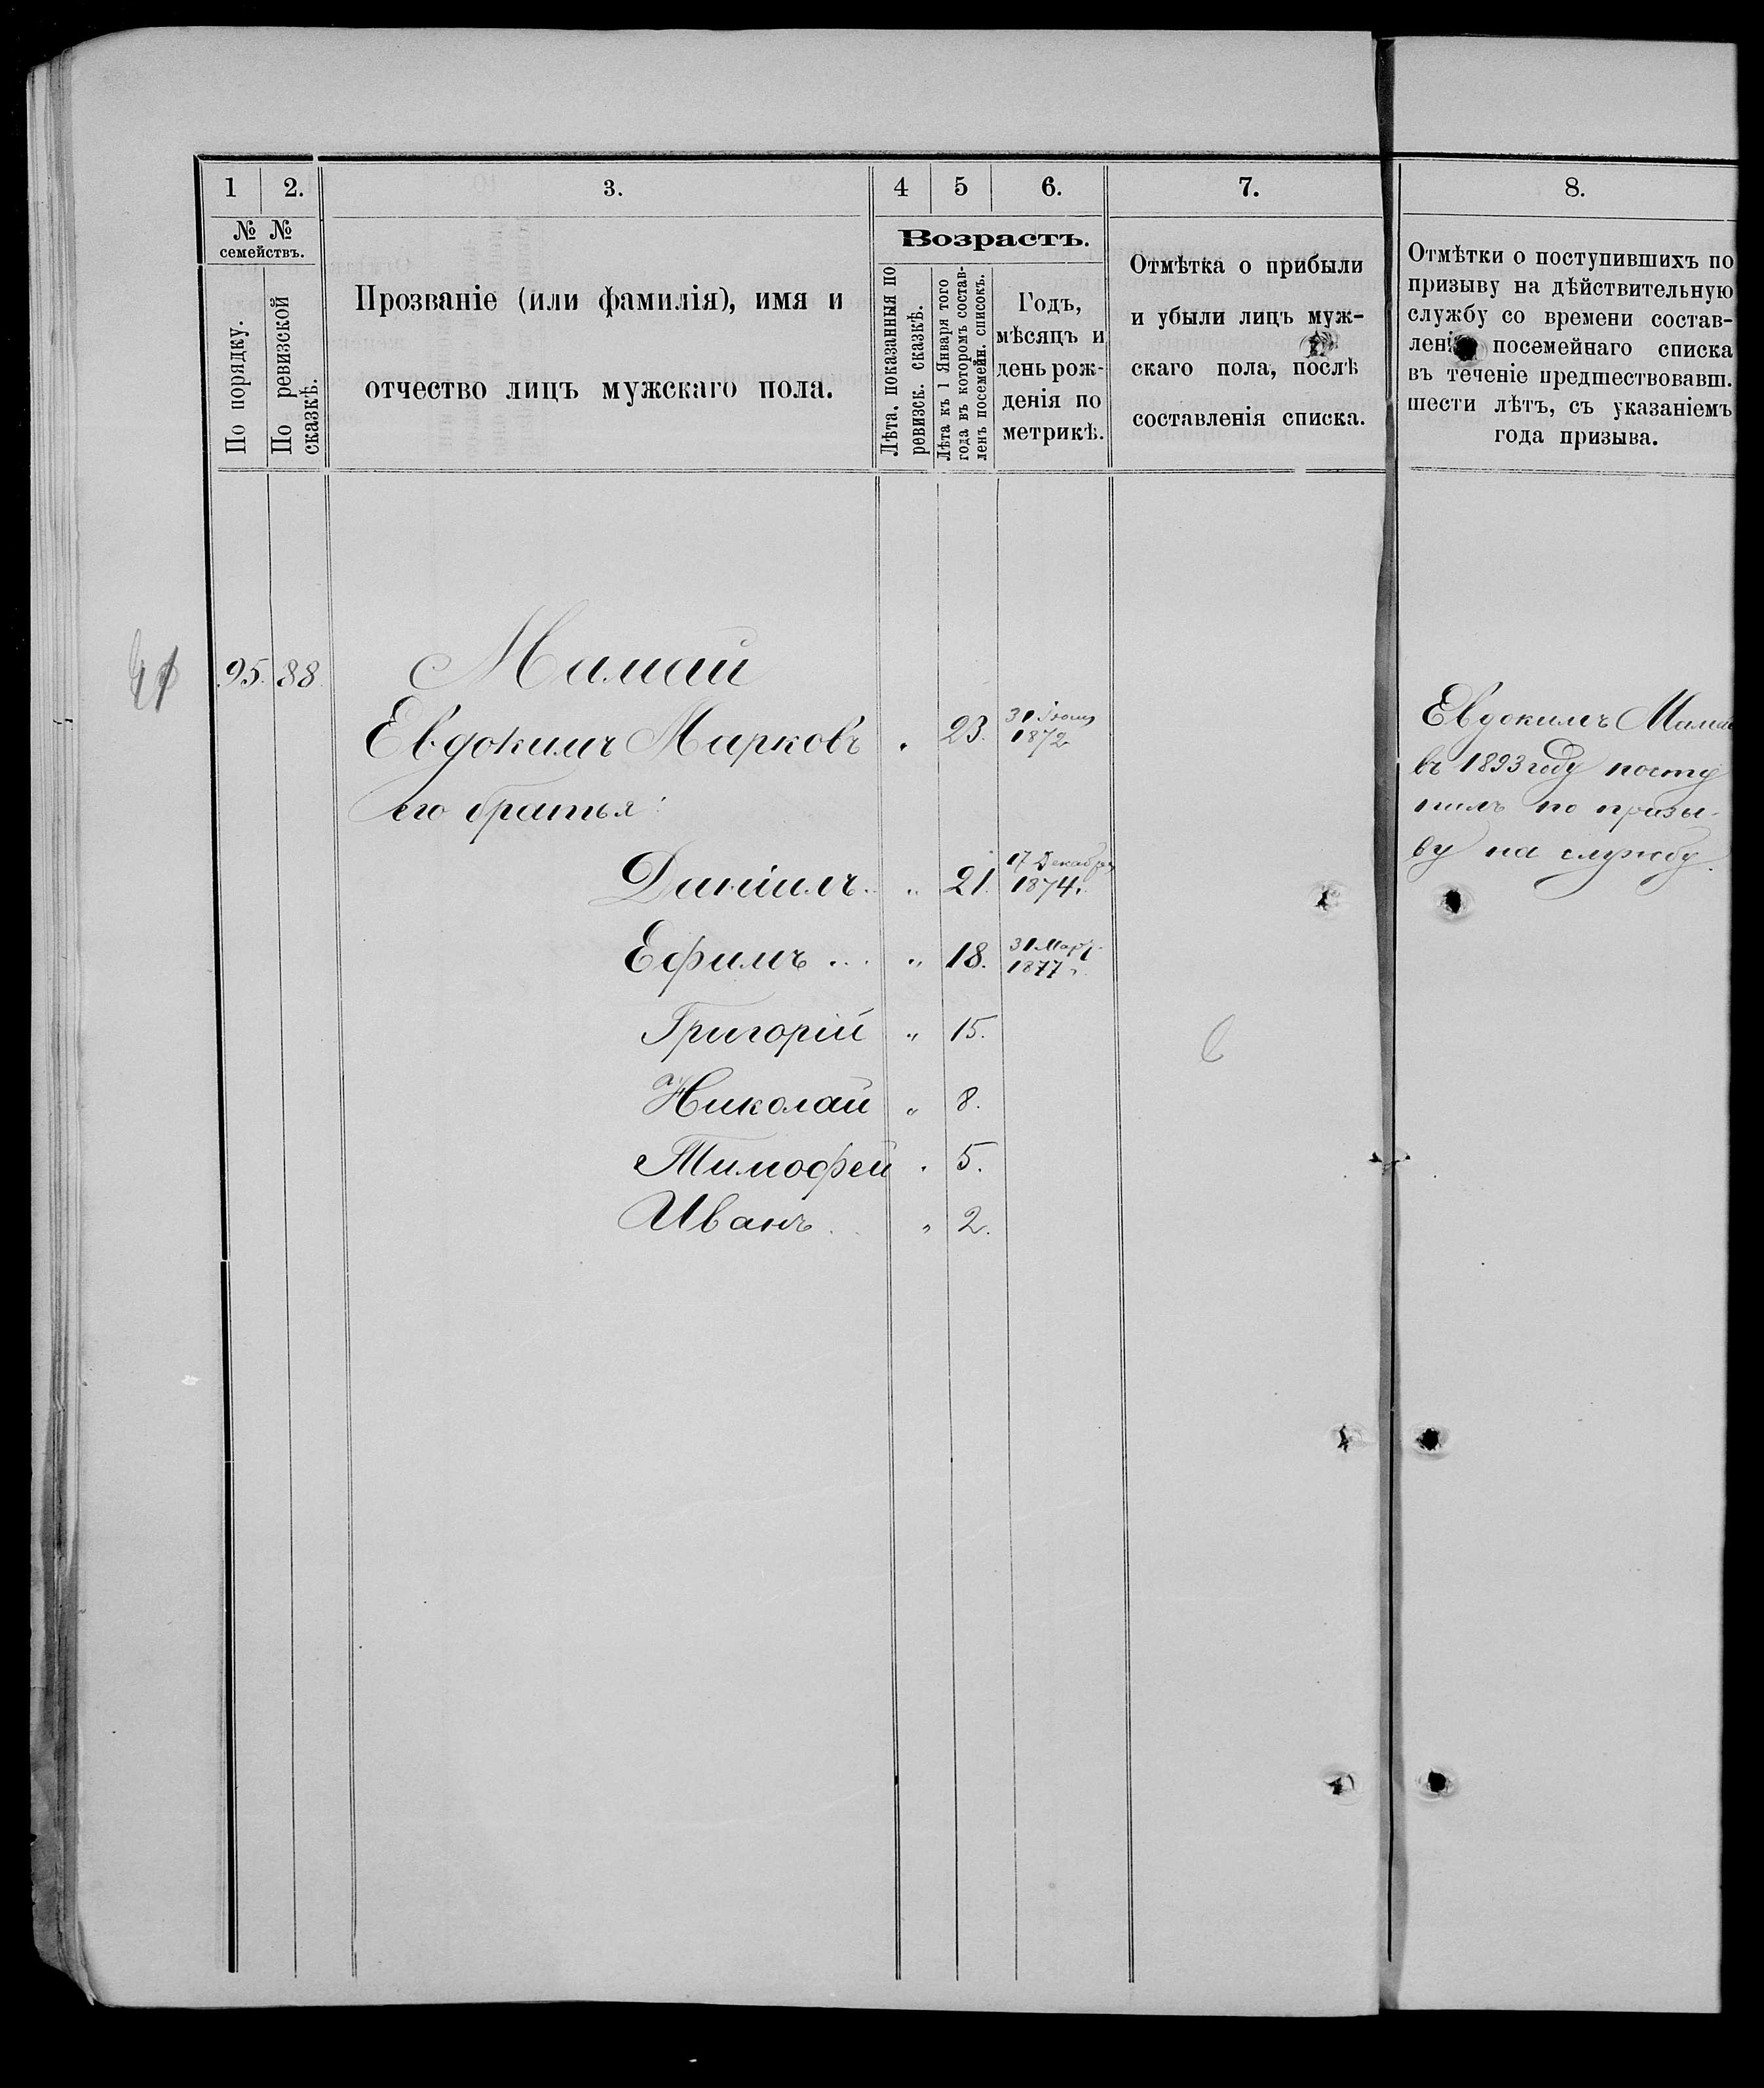 1 2. 3. 4 5 6. 7. 8.
№ №
семействъ.
По порядку.
По ревизской
сказкѣ.
Прозваніе (или фамилія), имя и
отчество лицъ мужскаго пола.
Возрастъ.
Лѣта, показанныя по
ревизск. сказкѣ.
Лѣта къ 1 Января того
года въ которомъ состав-
ленъ посемейн. списокъ.
Годъ,
мѣсяцъ и
день рож-
денія по
метрикѣ.
Отмѣтка о прибыли
и убыли лицъ муж-
скаго пола, послѣ
составленія списка.
Отмѣтки о поступившихъ по
призыву на дѣйствительную
службу со времени состав-
лені посемейнаго списка
въ теченіе предшествовавш.
шести лѣтъ, съ указаніемъ
года призыва.
95. 88 Мамай
Евдокимъ Марковъ 23.
1872
его братья:
Даніилъ " 21. 17 Декабря
1874.
Ефимъ " 18. 31 Март.
1877
Григорій " 15.
Николай " 8.
Тимофей " 5.
Иванъ " 2.
Евдокимъ Мамай
въ 1893 году посту
пилъ по призы-
ву на службу.